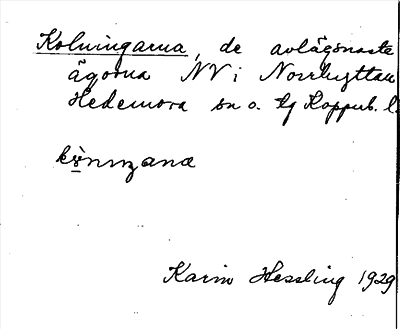 Kolningarna, de avlägsnaste
ägorna NV i Norrhyttan
Hedemora sn o. tg Koppab. l.
Karin Hessling 1929